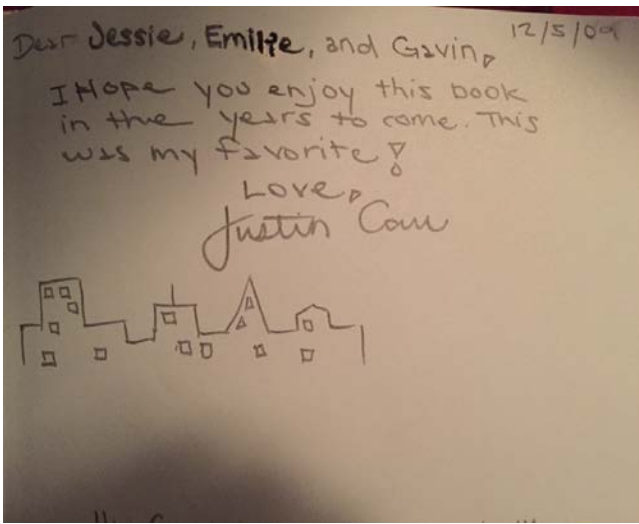 Dear Jessie, Emilie, and Gavin,
12/5/09
I Hope you enjoy this book
in the years to come. This
was my favorite!
Love,
Justin